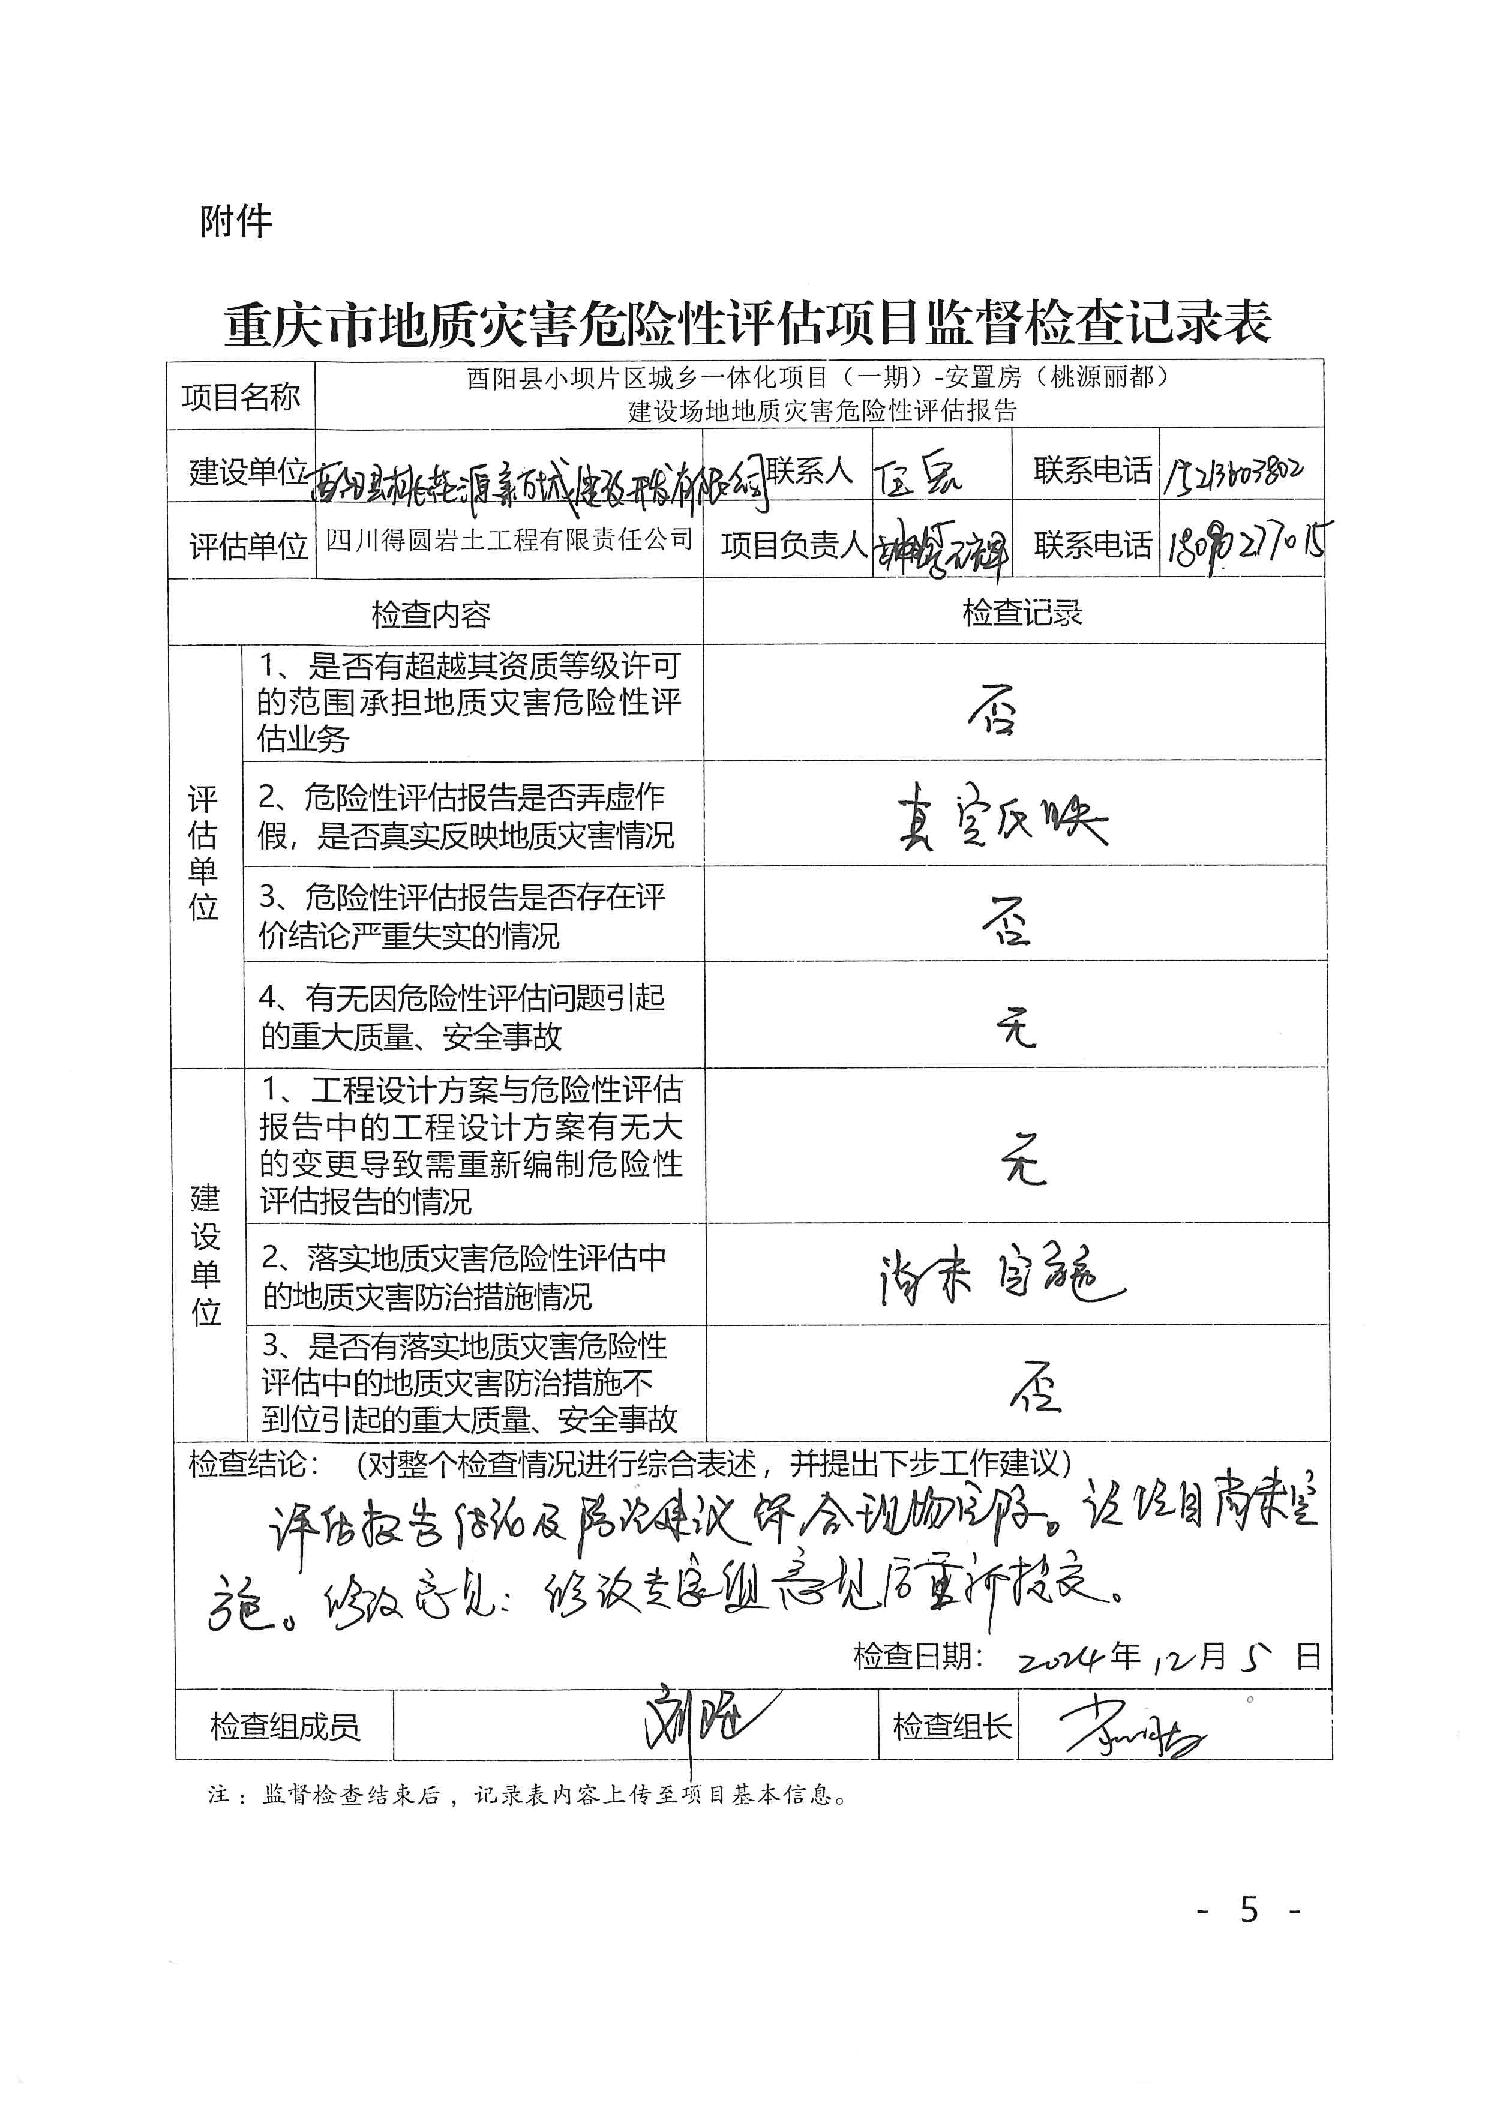 附件
重庆市地质灾害危险性评估项目监督检查记录表
项目名称
酉阳县小坝片区城乡一体化项目（一期）-安置房（桃源丽都）
建设场地地质灾害危险性评估报告
建设单位 酉阳县桃花源新城建设开发有限公司 联系人 联系电话 15213603802
评估单位 四川得圆岩土工程有限责任公司 项目负责人 联系电话
检查内容 检查记录
评估单位
1、是否有超越其资质等级许可
的范围承担地质灾害危险性评
估业务
否
2、危险性评估报告是否弄虚作
假，是否真实反映地质灾害情况
真实反映
3、危险性评估报告是否存在评
价结论严重失实的情况
否
4、有无因危险性评估问题引起
的重大质量、安全事故
无
建设单位
1、工程设计方案与危险性评估
报告中的工程设计方案有无大
的变更导致需重新编制危险性
评估报告的情况
无
2、落实地质灾害危险性评估中
的地质灾害防治措施情况
尚未实施
3、是否有落实地质灾害危险性
评估中的地质灾害防治措施不
到位引起的重大质量、安全事故
否
检查结论：（对整个检查情况进行综合表述，并提出下步工作建议）
评估报告结论及防治建议符合现场实际。该项目尚未实
施。修改意见：修改专家组意见后重新提交。
检查日期： 2024年12月5日
检查组成员 检查组长
注：监督检查结束后，记录表内容上传至项目基本信息。
- 5 -